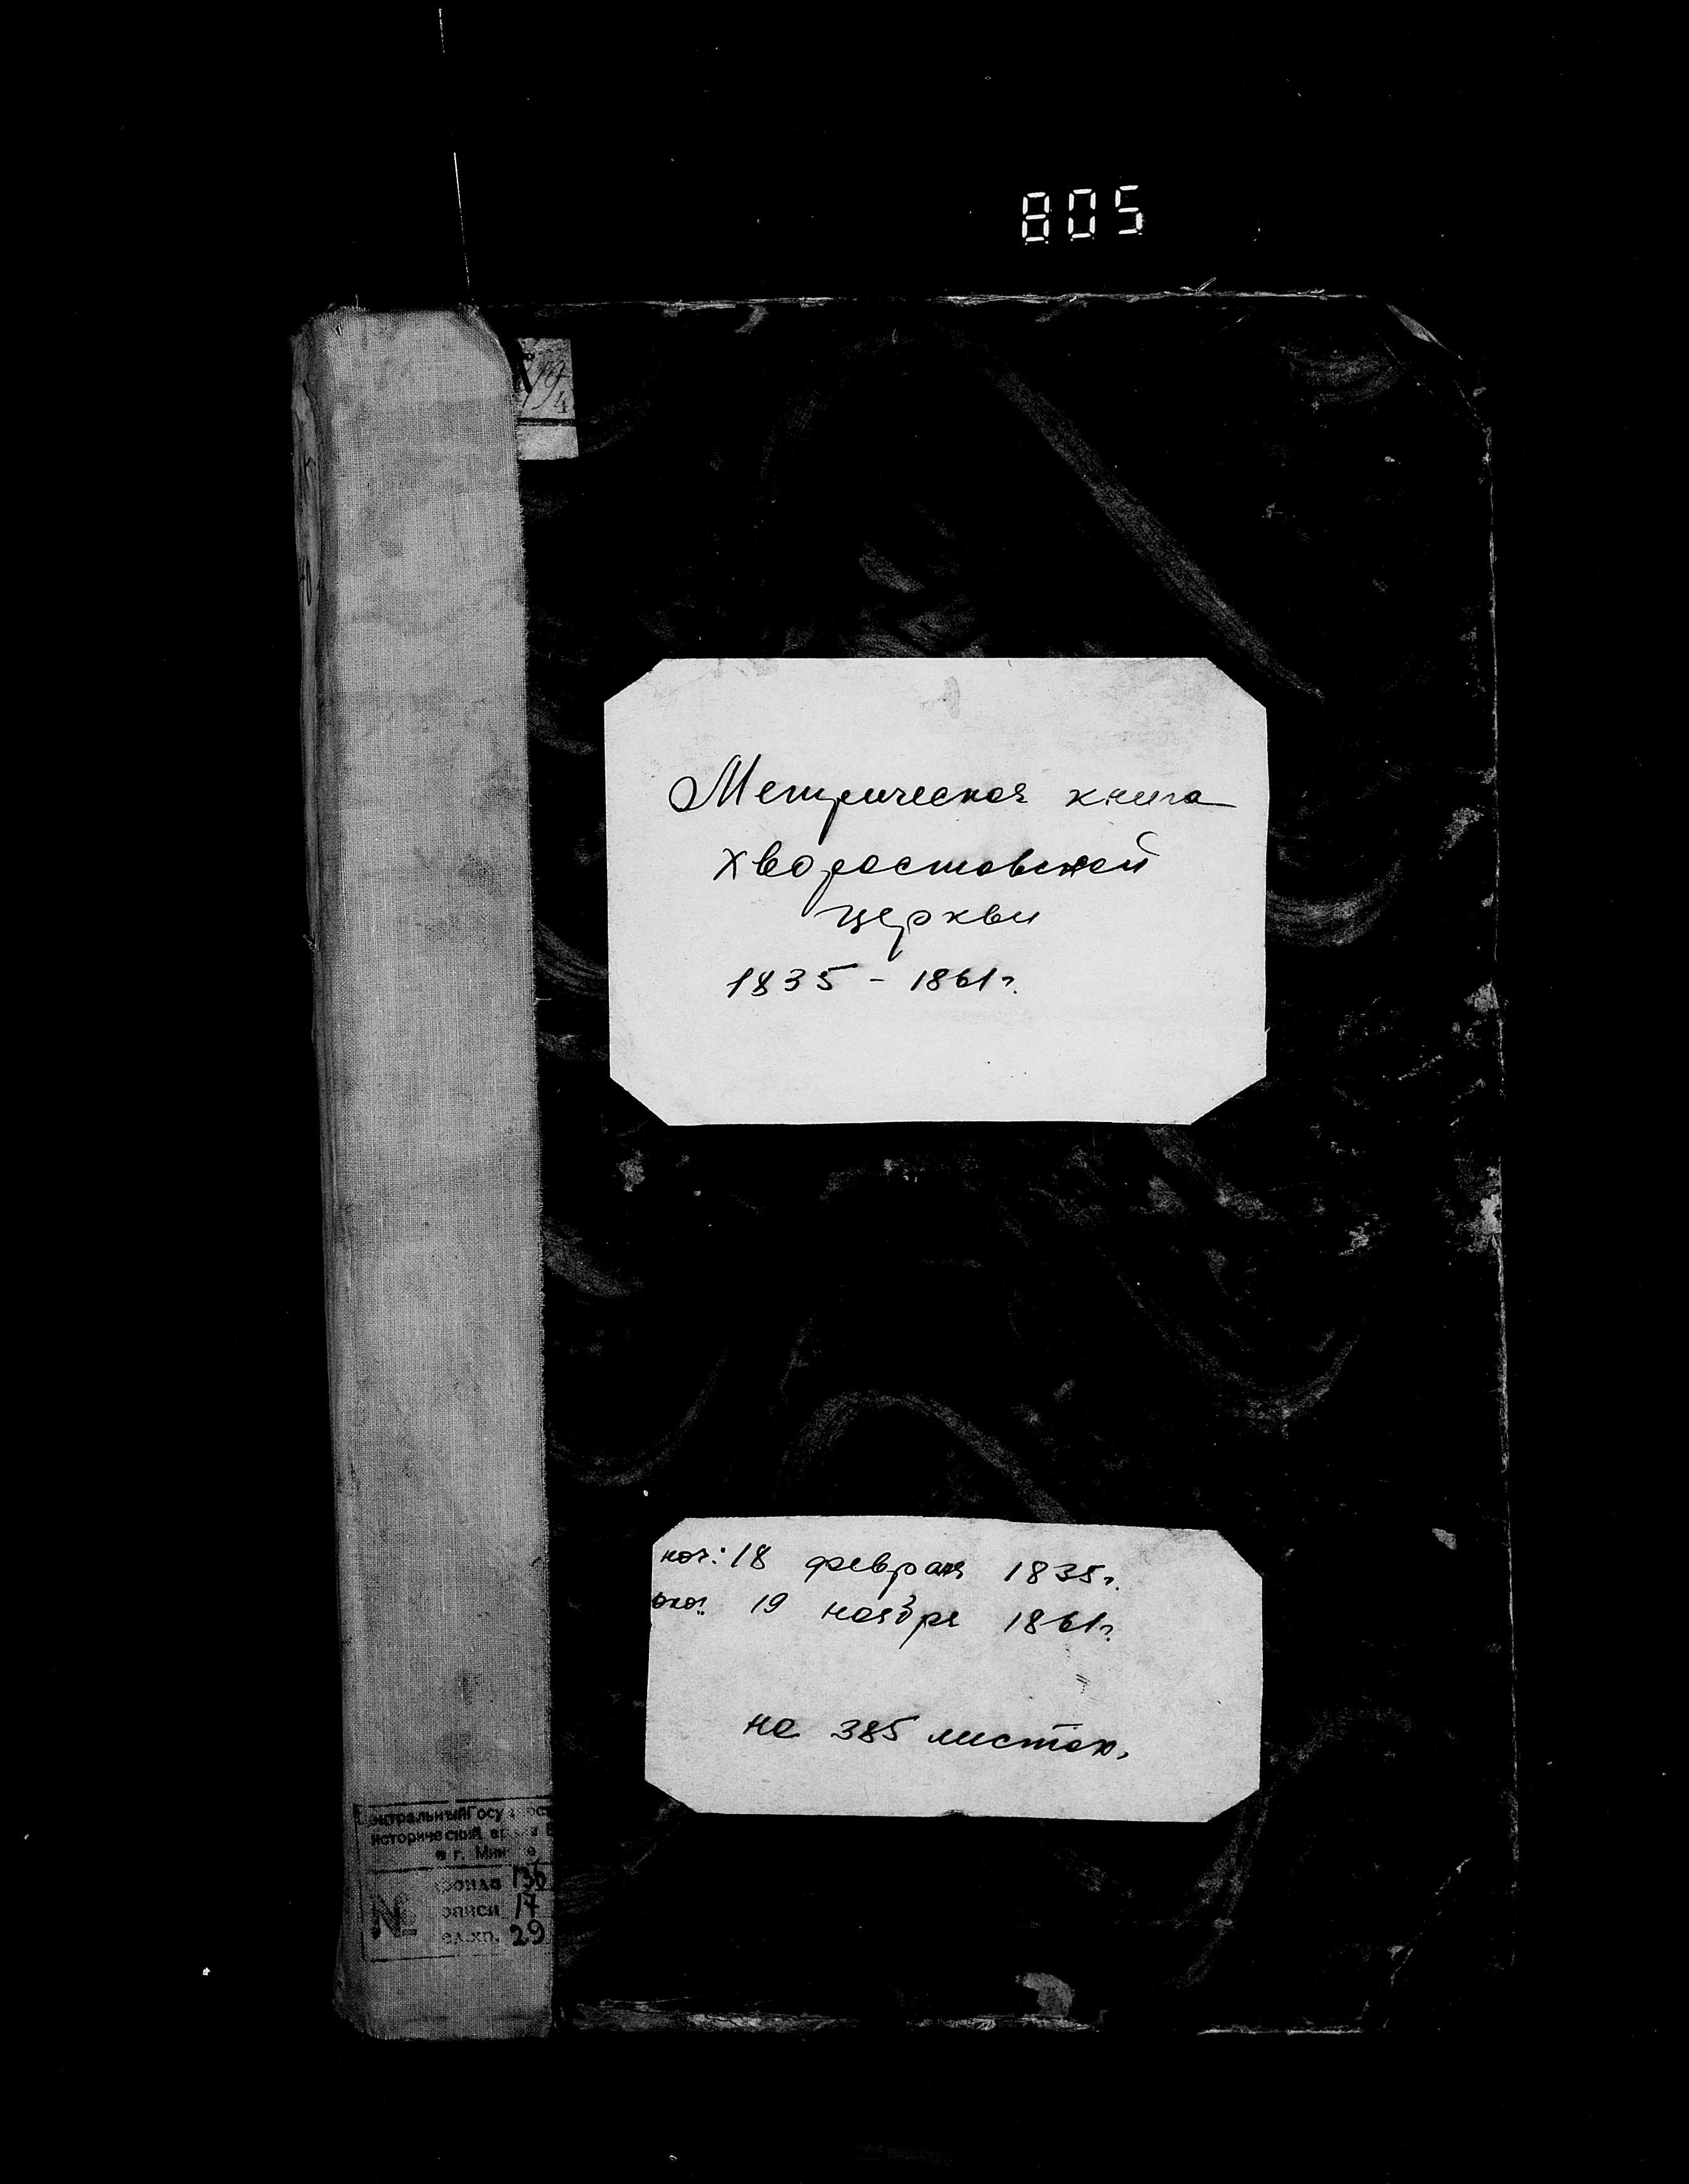 805
Метрическая книга
Хворостовской
церкви
1835 - 1861 г.
нач: 18 февраля 1835 г.
око: 19 ноября 1861 г.
на 385 листах.
исторический
в г.
фонда 136
описи 17
ед.хр. 29
№